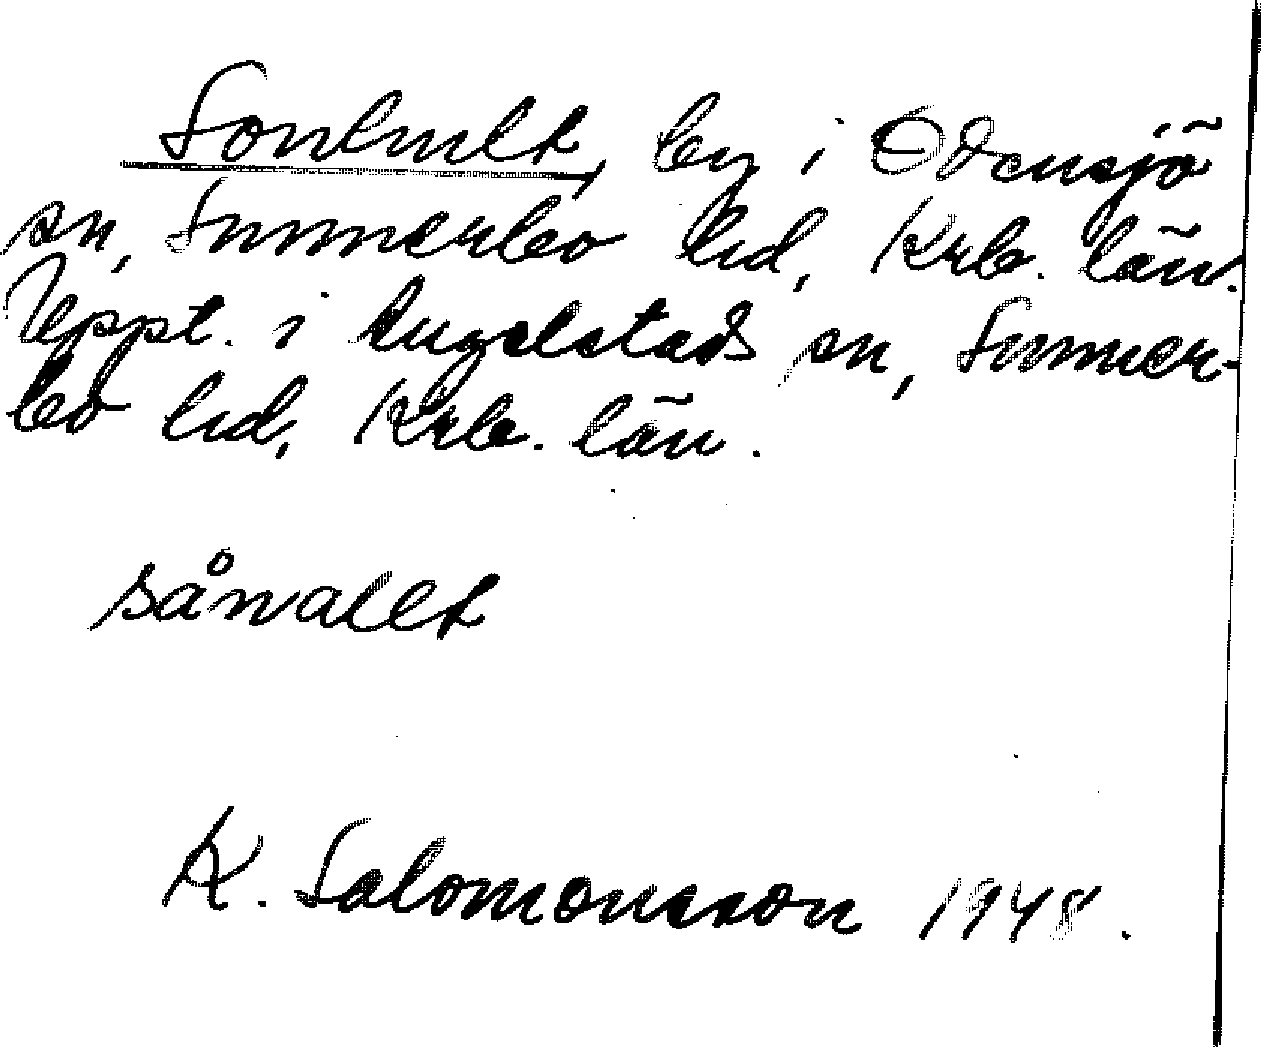 Sonhult, by i Odensjö
sn, Sunnerbo hd, Krb. län.
Uppt. i Angelstads sn, Sunner-
bo hd, Krb. län.
sånallt
K. Salomonsson 1948.